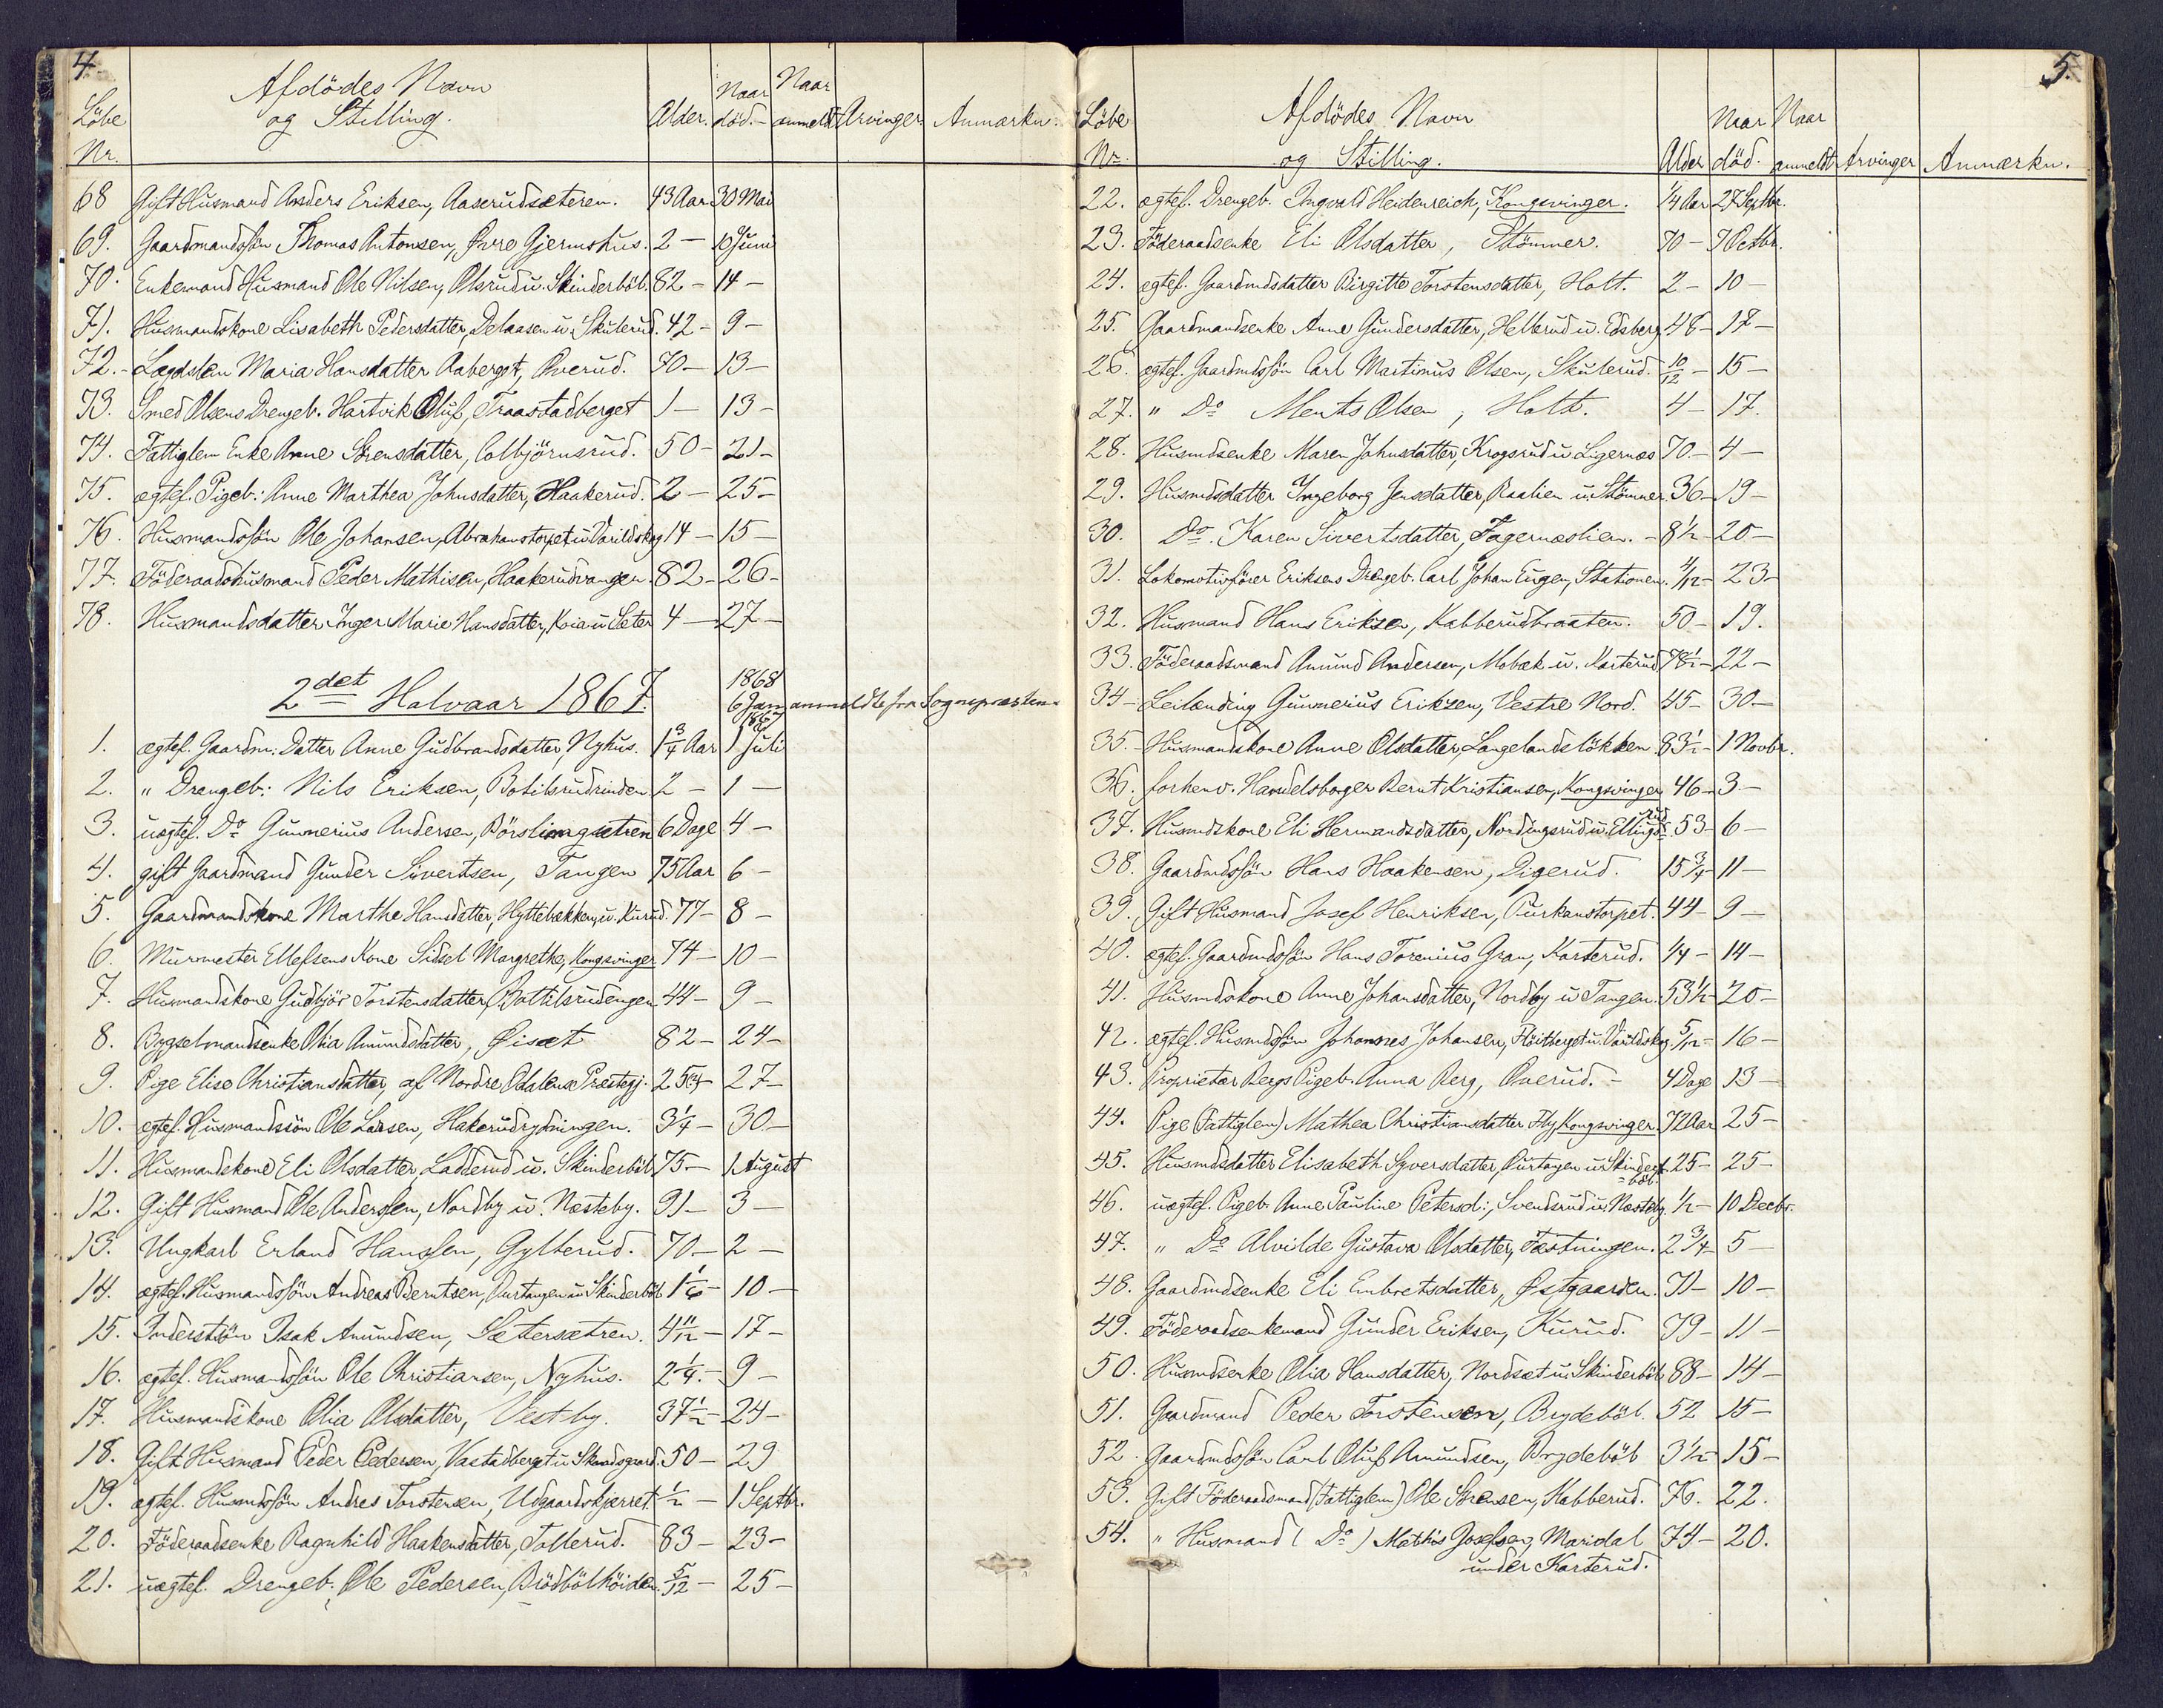 4.
Löbe Nr.
Afdödes Navn og Stilling.
Alder.
Naar död.
Naar anmeldt
Arvinger.
Anmærkn.
68 Gift Husmand Anders Eriksen, Aaserudsæteren. 43 Aar 30 Mai
69. Gaardmandssön Thomas Antonsen, Øvre Gjermshus. 2 — 10 Juni
70. Enkemand Husmand Ole Nilsen, Olsrud u. Skinderböl. 82 — 14 —
71. Husmandskone Lisabeth Pedersdatter, Delaasen u. Skulerud. 42 — 9 —
72. Lægdslem Maria Hansdatter Aaberget, Overud. 70 — 13 —
73. Smed Olsens Drengeb. Hartvik Oluf, Traastadberget 1 — 13 —
74. Fattiglem Enke Anne Sörensdatter, Colbjörnsrud. 50 — 21 —
75. ægtef. Pigeb.: Anne Marthea Johnsdatter, Haakerud. 2 — 25 —
76. Husmandssön Ole Johansen, Abrahamstorpet u. Varildskog 14 — 15 —
77. Föderaadshusmand Peder Mathisen, Haakerudvangen. 82 — 26 —
78. Husmandsdatter Inger Marie Hansdatter, Koia u. Sæter 4 — 27 —
2det Halvaar 1867.
1868 6 Jan anmeldte fra Sognepræsten
1867
1. ægtef. Gaardm: Datter Anne Gudbrandsdatter, Nyhus. 1 3/4 Aar 1 Juli
2. " Drengeb: Nils Eriksen, Botilsrudrinden 2 — 1 —
3. uægtef. Do Gunnerius Andersen, Börslimgsætren 6 Dage 4 —
4. gift Gaardmand Gunder Sivertsen, Tangen 75 Aar 6 —
5. Gaardmandskone Marthe Hansdatter, Hyttebakken, u. Kurud. 77 — 8 —
6. Murmester Ellefsens Kone Sidsel Margrethe, Kongsvinger 74 — 10 —
7. Husmandskone Gudbjör Torstensdatter, Bottilsrudengen 44 — 9 —
8. Bygselmandsenke Olia Amundsdatter, Øisæt 82 — 24 —
9. Pige Elise Christiansdatter, af Nordre Odalens Prestegj. 25 3/4 — 27 —
10. ægtef. Husmandssön Ole Larsen, Hakerudrydningen. 3 1/4 — 30 —
11. Husmandskone Eli Olsdatter, Ladderud u. Skinderböl 75 — 1 August
12. Gift Husmand Ole Anderssen, Nordby u. Næsteby. 91 — 3 —
13. Ungkarl Erland Hanssen, Gylterud. 70 — 2 —
14. ægtef. Husmandssön Andreas Berntsen, Purtangen u. Skinderböl 1 1/6 — 10 —
15. Inderstsön Isak Amundsen, Sættersætren. 4 11/12 — 17 —
16. ægtef. Husmandssön Ole Christiansen, Nyhus. 2 1/4. — 9 —
17. Husmandskone Olia Olsdatter, Vestby. 37 1/2 — 24 —
18. Gift Husmand Peder Pedersen, Vastadberget u. Skansgaard. 50 — 29
19. ægtef. Husmdssön Andres Torstensen, Udgaardskjærret. 1/2 — 1 Septbr.
20. Föderaadsenke Ragnhild Haakensdatter, Tollerud. 83 — 23 —
21. uægtef. Drengeb. Ole Pedersen, Brödbölhöiden. 5/12 — 25 —
5.
Löbe Nr.
Afdödes Navn og Stilling.
Alder
Naar död.
Naar anmeldt
Arvinger
Anmærkn.
22. ægtef. Drengeb. Ingvald Heidenreich, Kongsvinger. 1/4 Aar 27 Septbr.
23. Föderaadsenke Eli Olsdatter, Stömner. 70 — 7 Octbr.
24. ægtef. Gaardmdsdatter Birgitte Torstensdatter, Holt. 2 — 10 —
25. Gaardmandsenke Anne Gundersdatter, Hellerud u. Edsberg 48 — 17 —
26. ægtef. Gaardmdssön Carl Martinus Olsen, Skulerud. 10/12 — 15 —
27. " Do Ments Olsen, Holt. 4 — 17.
28. Husmdsenke Maren Johnsdatter, Krogsrud u. Ligernæs 70 — 4 —
29. Husmdsdatter Ingeborg Jensdatter, Raalien u. Stömner. 36 — 19 —
30. Do. Karen Sivertsdatter, Fagernæslien. 8 1/2 — 20 —
31. Lokomotivförer Eriksens Drengeb. Carl Johan Eugen, Stationen. 4/12 — 23 —
32. Husmand Hans Eriksen, Kabberudbraaten. 50 — 19.
33. Föderaadsmand Amund Andersen, Mobæk u. Karterud 78 1/2 — 22 —
34 Leilænding Gunnerius Eriksen, Vestre Nord. 45 — 30 —
35. Husmandskone Anne Olsdatter, Langelandslökken 83 1/2 — 1 Novbr.
36. forhenv. Handelsborger Bernt Kristiansen, Kongsvinger 46 — 3 —
37. Husmdskone Eli Hermandsdatter, Nordingsrud u. Ellingsrud 53 — 6 —
38. Gaardmdssön Hans Haakensen, Digerud. 15 3/4 — 11 —
39. Gift Husmand Josef Henriksen, Purkenstorpet. 44 — 9 —
40. ægtef. Gaardmdssön Hans Torenius Gran, Karterud. 1/4 — 14 —
41. Husmdskone Anne Johansdatter, Nordby u Tangen. 53 1/2 — 20 —
42. ægtef. Husmdssön Johannes Johansen, Flöitberget u. Varildskog. 5/12 — 16 —
43. Proprietær Bergs Pigeb. Anna Berg, Overud. 4 Dage 13 —
44. Pige (Fattiglem) Mathea Christiansdatter Fly, Kongsvinger. 72 Aar 25 —
45. Husmdsdatter Elisabeth Syversdatter, Purtangen u. Skinderböl. 25 — 25 —
46. uægtef. Pigeb. Anne Pauline Petersd:, Svendsrud u. Næsteby. 1/2 — 10 Decbr.
47. " Do Alvilde Gustava Olsdatter, Fæstningen. 2 3/4 — 5 —
48. Gaardmdsenke Eli Embretsdatter, Østgaarden. 71 — 10 —
49. Föderaadsenkemand Gunder Eriksen, Kurud. 79 — 11 —
50. Husmdsenke Olia Hansdatter, Nordsæt u. Skinderböl 88 — 14 —
51. Gaardmand Peder Torstensen, Brydeböl. 52 15 —
52. Gaardmdssön Carl Oluf Amundsen, Brydeböl 3 1/2 — 15 —
53. Gift Föderaadsmand (Fattiglem) Ole Sörensen, Kabberud. 76. 22.
54. " Husmand (Do) Mathis Josefsen, Maridal 74 — 20.
under Karterud.